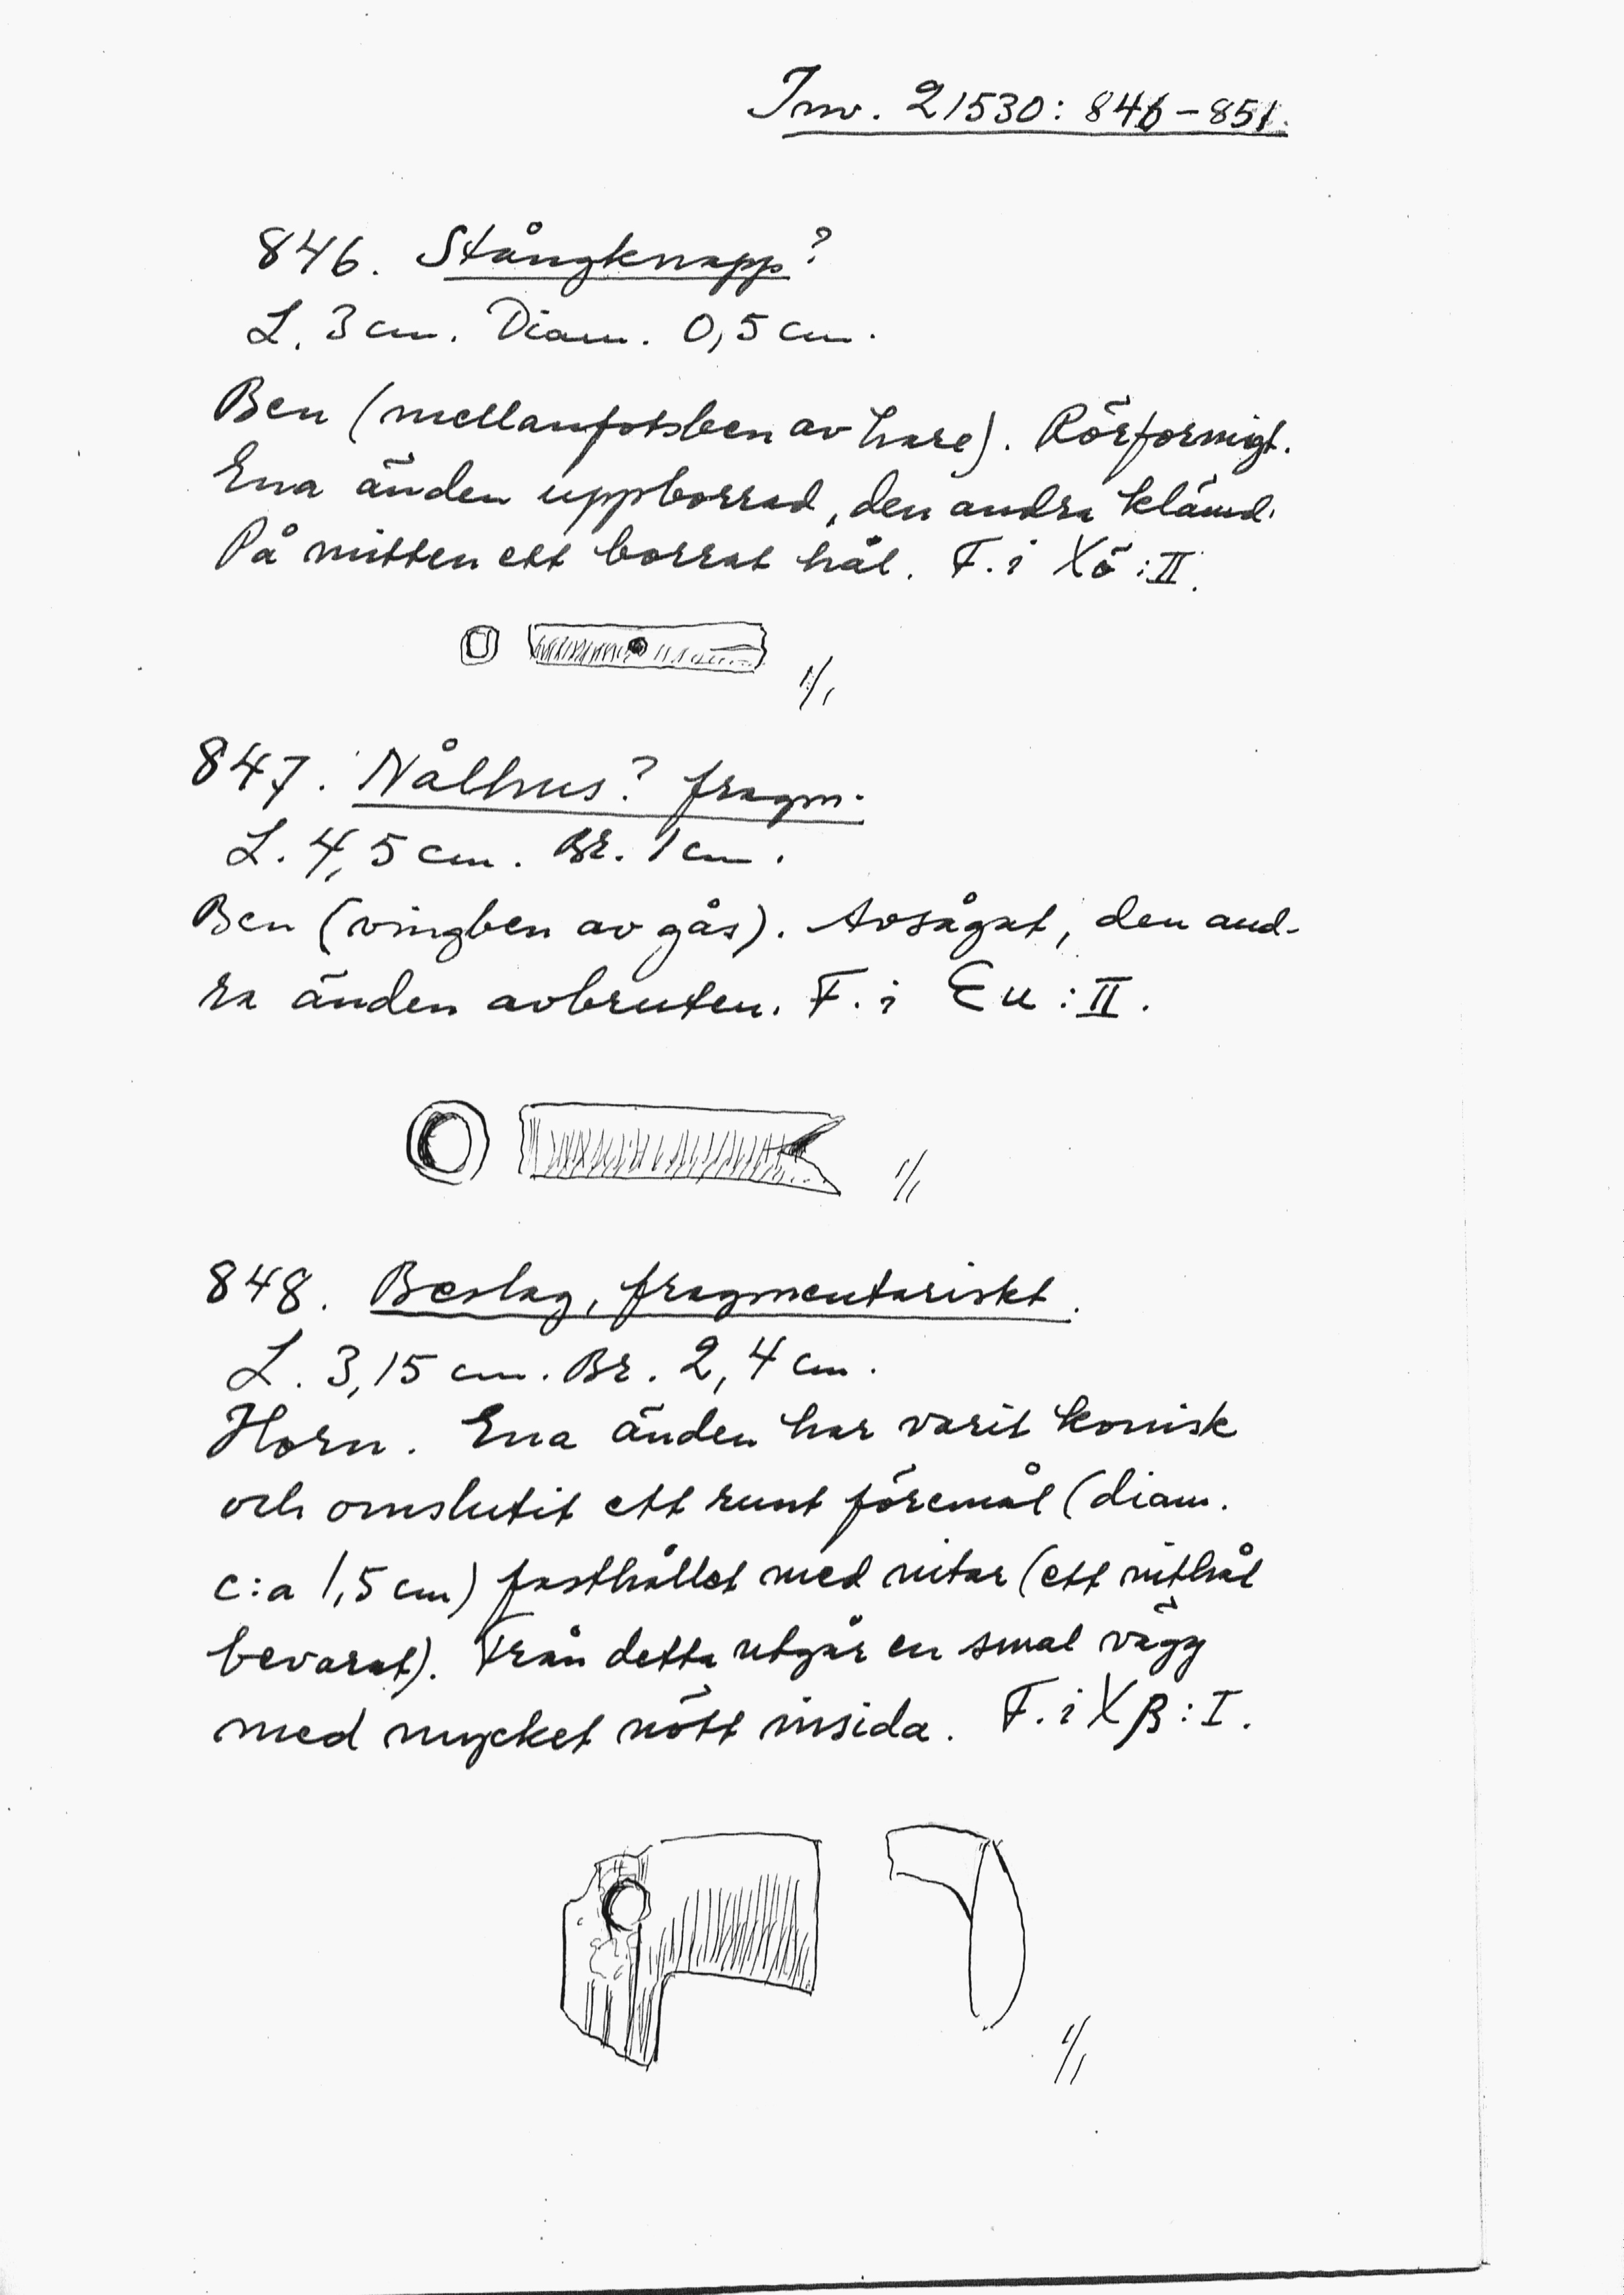 Inv. 21530: 846-851.
846. Stångknapp?
L. 3 cm. Diam. 0,5 cm.
Ben (mellanfotsben av hare). Rörformigt.
Ena änden uppborrad, den andra klämd.
På mitten ett borrat hål. F. i Xö:II.
1/1
847. Nålhus? fragm.
L. 4,5 cm. Br. 1 cm.
Ben (vingben av gås). Avsågat, den and-
ra änden avbruten. F. i Eu:II.
1/1
848. Beslag, fragmentariskt.
L. 3,15 cm. Br. 2,4 cm.
Horn. Ena änden har varit konisk
och omslutit ett runt föremål (diam.
c:a 1,5 cm) fasthållet med nitar (ett nithål
bevarat). Från detta utgår en smal vägg
med mycket nött insida. F. i Xβ:I.
1/1